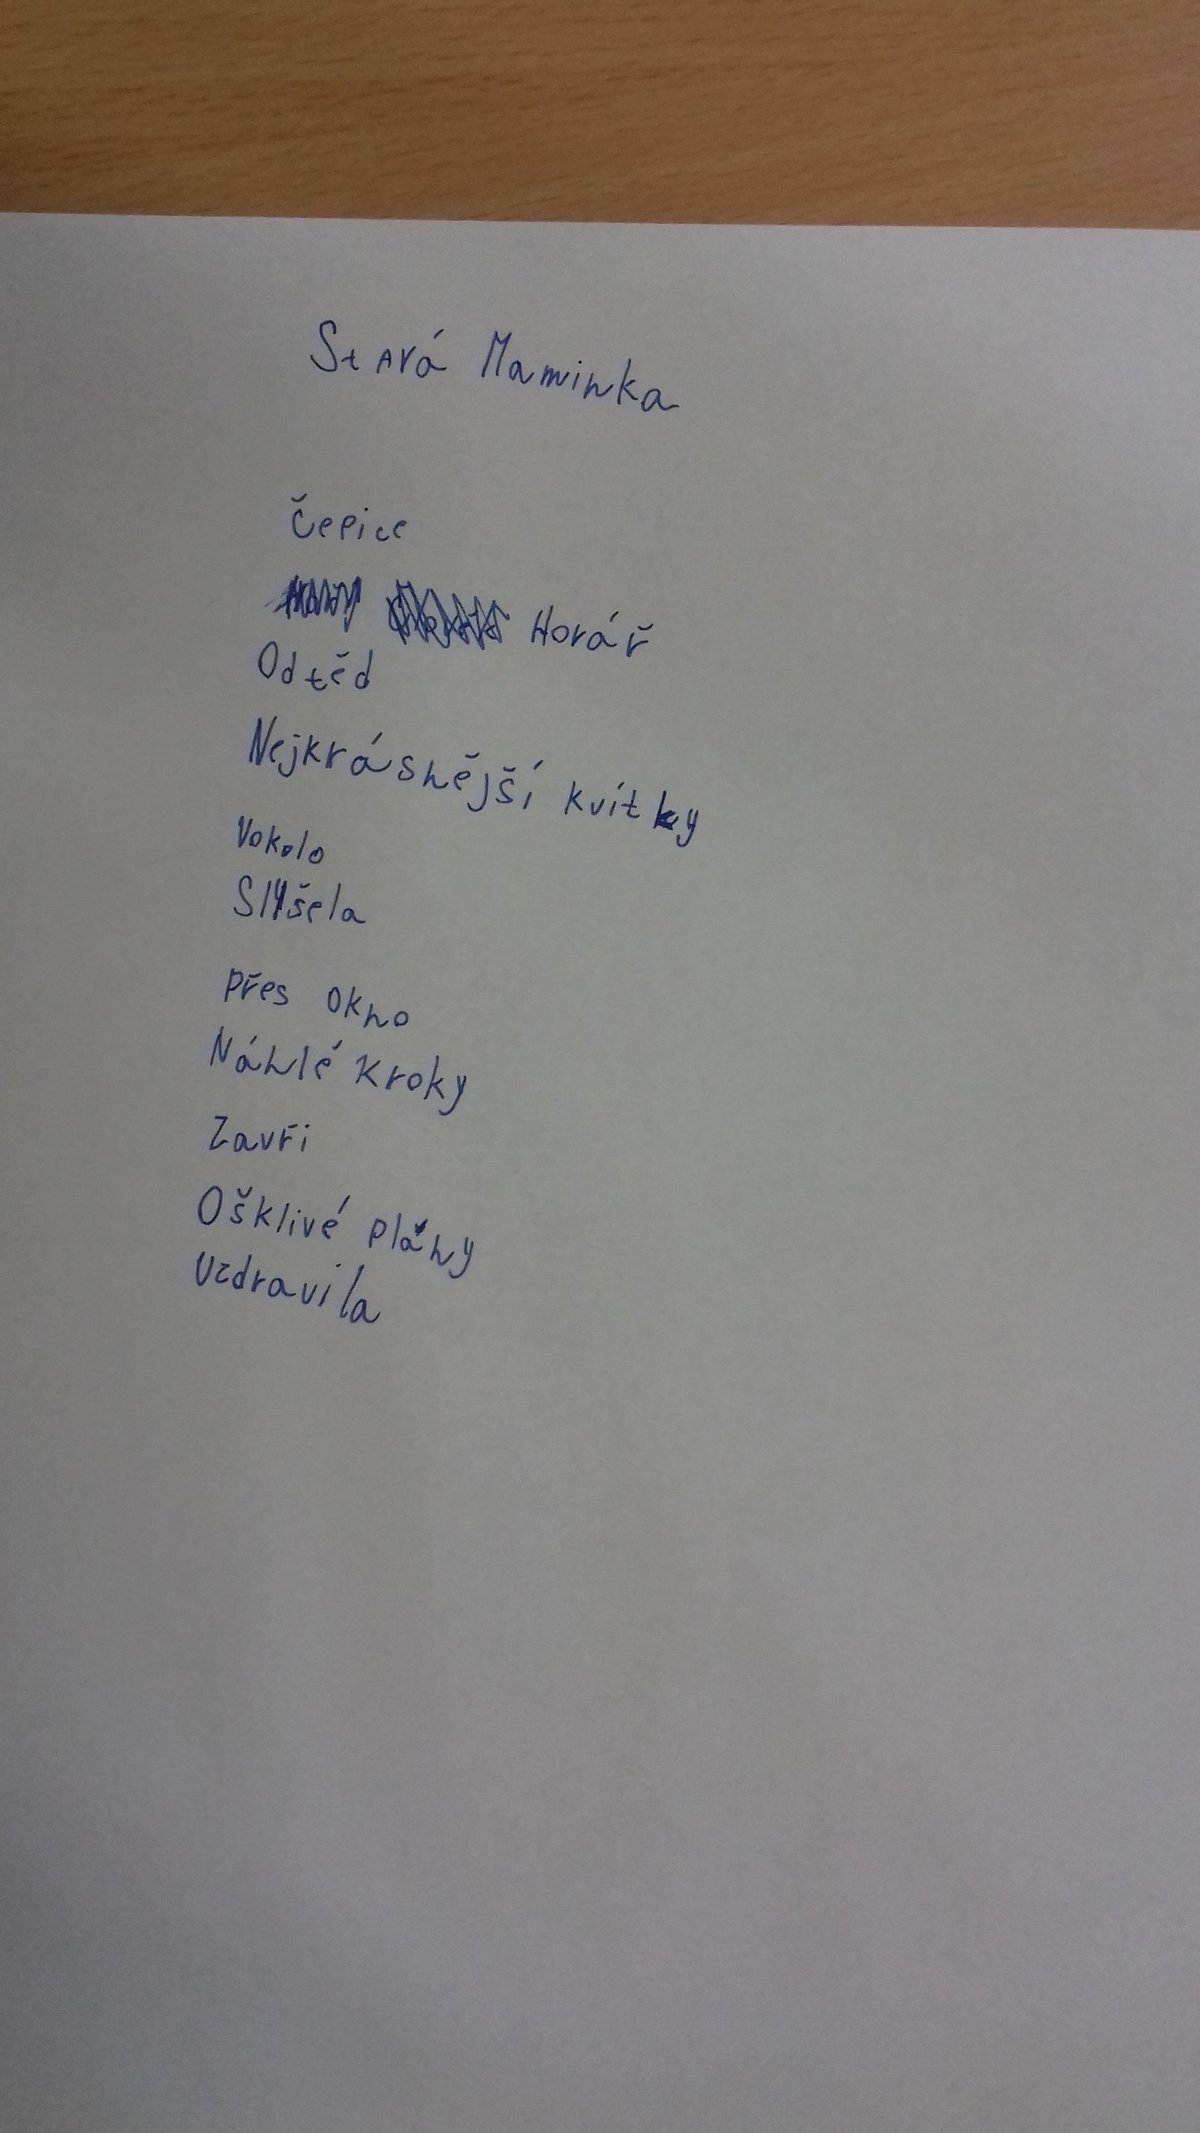 Stará Maminka
Čepice
Horář
Odtěd
Nejkrásnější kvítky
Vokolo
Slyšela
Přes okno
Náhlé kroky
Zavři
Ošklivé plány
Uzdravila